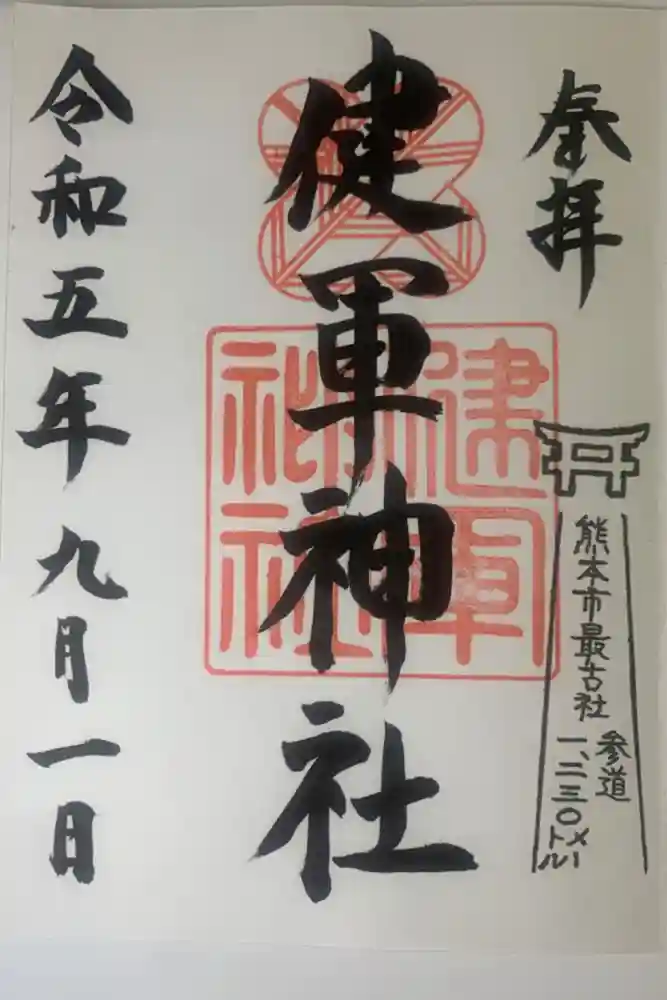 奉拝
熊本市最古社
参道
一、二三〇メートル
健軍神社
健軍神社
令和五年九月一日